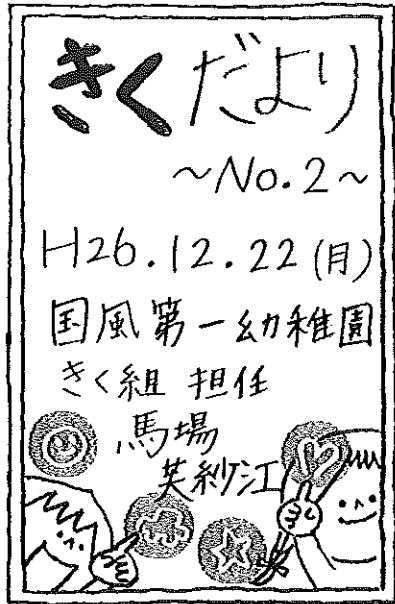 きくだより
~No.2~
H26.12.22(月)
国風第一幼稚園
きく組 担任
馬場
芙紗江